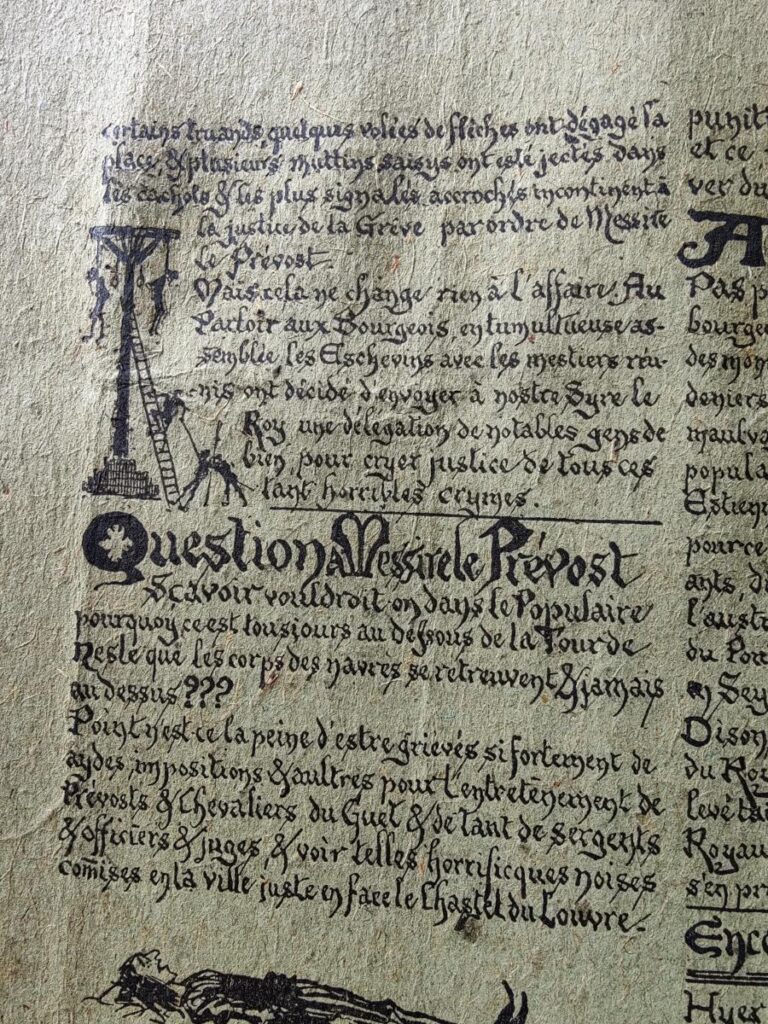 certains truands, quelques volées de flèches ont dégagé la
place, & plusieurs muttins saisys ont esté jectés dans
les cachots & les plus signalés, accrochés incontinent à
la justice de la Grève par ordre de Messire
le Prévost.
Mais cela ne change rien à l'affaire. Au
Parloir aux Bourgeois, en tumultueuse as-
semblée, les Eschevins avec les mestiers réu-
nis ont décidé d'envoyer à nostre Syre le
Roy une délégation de notables, gens de
bien, pour cryer justice de tous ces
tant horribles crymes.
Question à Messire le Prévost
Sçavoir vouldroit-on dans le Populaire
pourquoy, ce est tousjours au dessous de la Tour de
Nesle que les corps des navrés se retreuvent & jamais
au dessus ???
Point n'est-ce la peine d'estre grievés si fortement de
aydes, impositions & aultres pour l'entretènement de
Prévosts & Chevaliers du Guet & de tant de sergents
& officiers & juges, & voir telles horrificques noises
com̃ises en la ville juste en face le Chastel du Louvre.
punit
et ce
ver du
A
Pas p
bourgeo
des mon
deniers
maulva
popula
Estienn
pource
ants, d
l'austr
du Pon
en Sey
Oison
du Roy
levé tai
Royau
s'en pr
Enco
Hyer